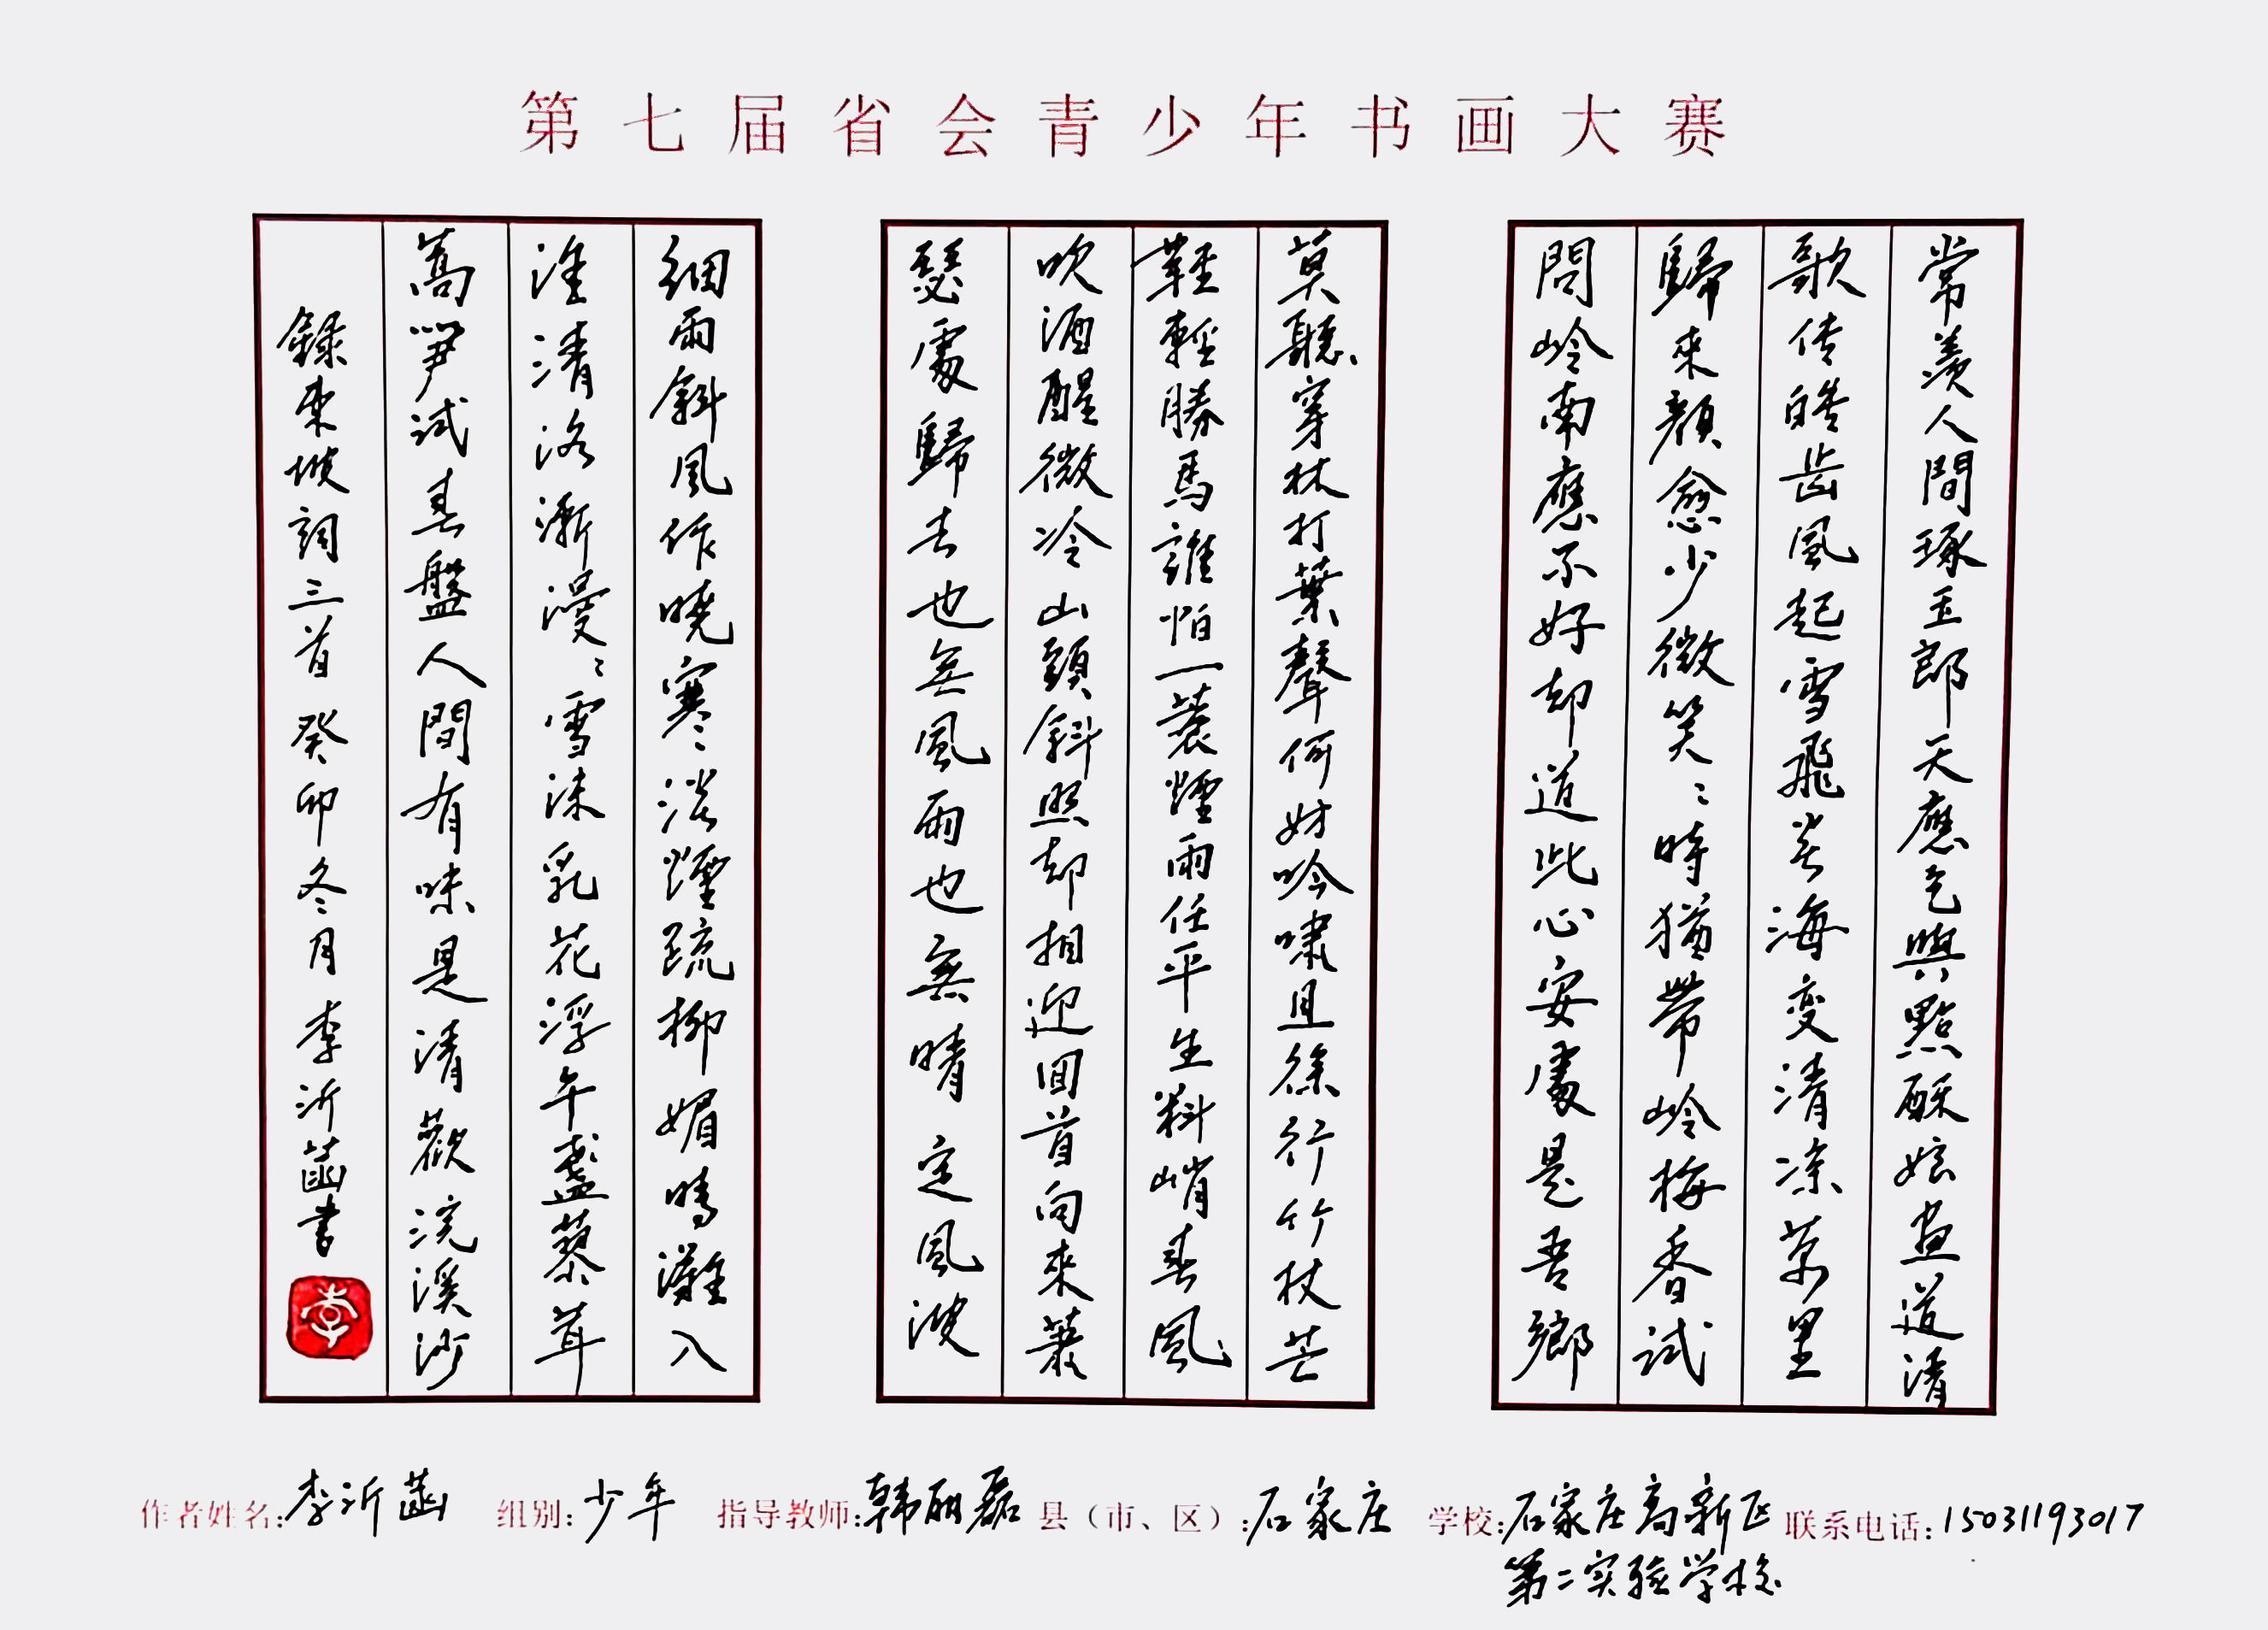 第七届省会青少年书画大赛
常羨人間琢玉郎天應乞與點酥娘盡道清
歌传皓齿風起雪飛炎海变清凉萬里
歸來顏愈少微笑〻時猶帶岭梅香試
問岭南應不好却道此心安處是吾鄉
莫聽穿林打葉聲何妨吟嘯且徐行竹杖芒
鞋輕勝馬誰怕一蓑煙雨任平生料峭春風
吹酒醒微冷山頭斜照却相迎回首向來蕭
瑟處歸去也無風雨也無晴 定風波
細雨斜風作曉寒淡煙疏柳媚晴灘入
淮清洛漸漫〻雪沫乳花浮午盞蓼茸
蒿笋試春盤人間有味是清歡浣溪沙
錄東坡詞三首 癸卯冬月 李沂菡書
李
作者姓名：李沂菡 组别：少年 指导教师：韩丽磊 县（市、区）：石家庄 学校：石家庄高新区 联系电话：15031193017
第二实验学校